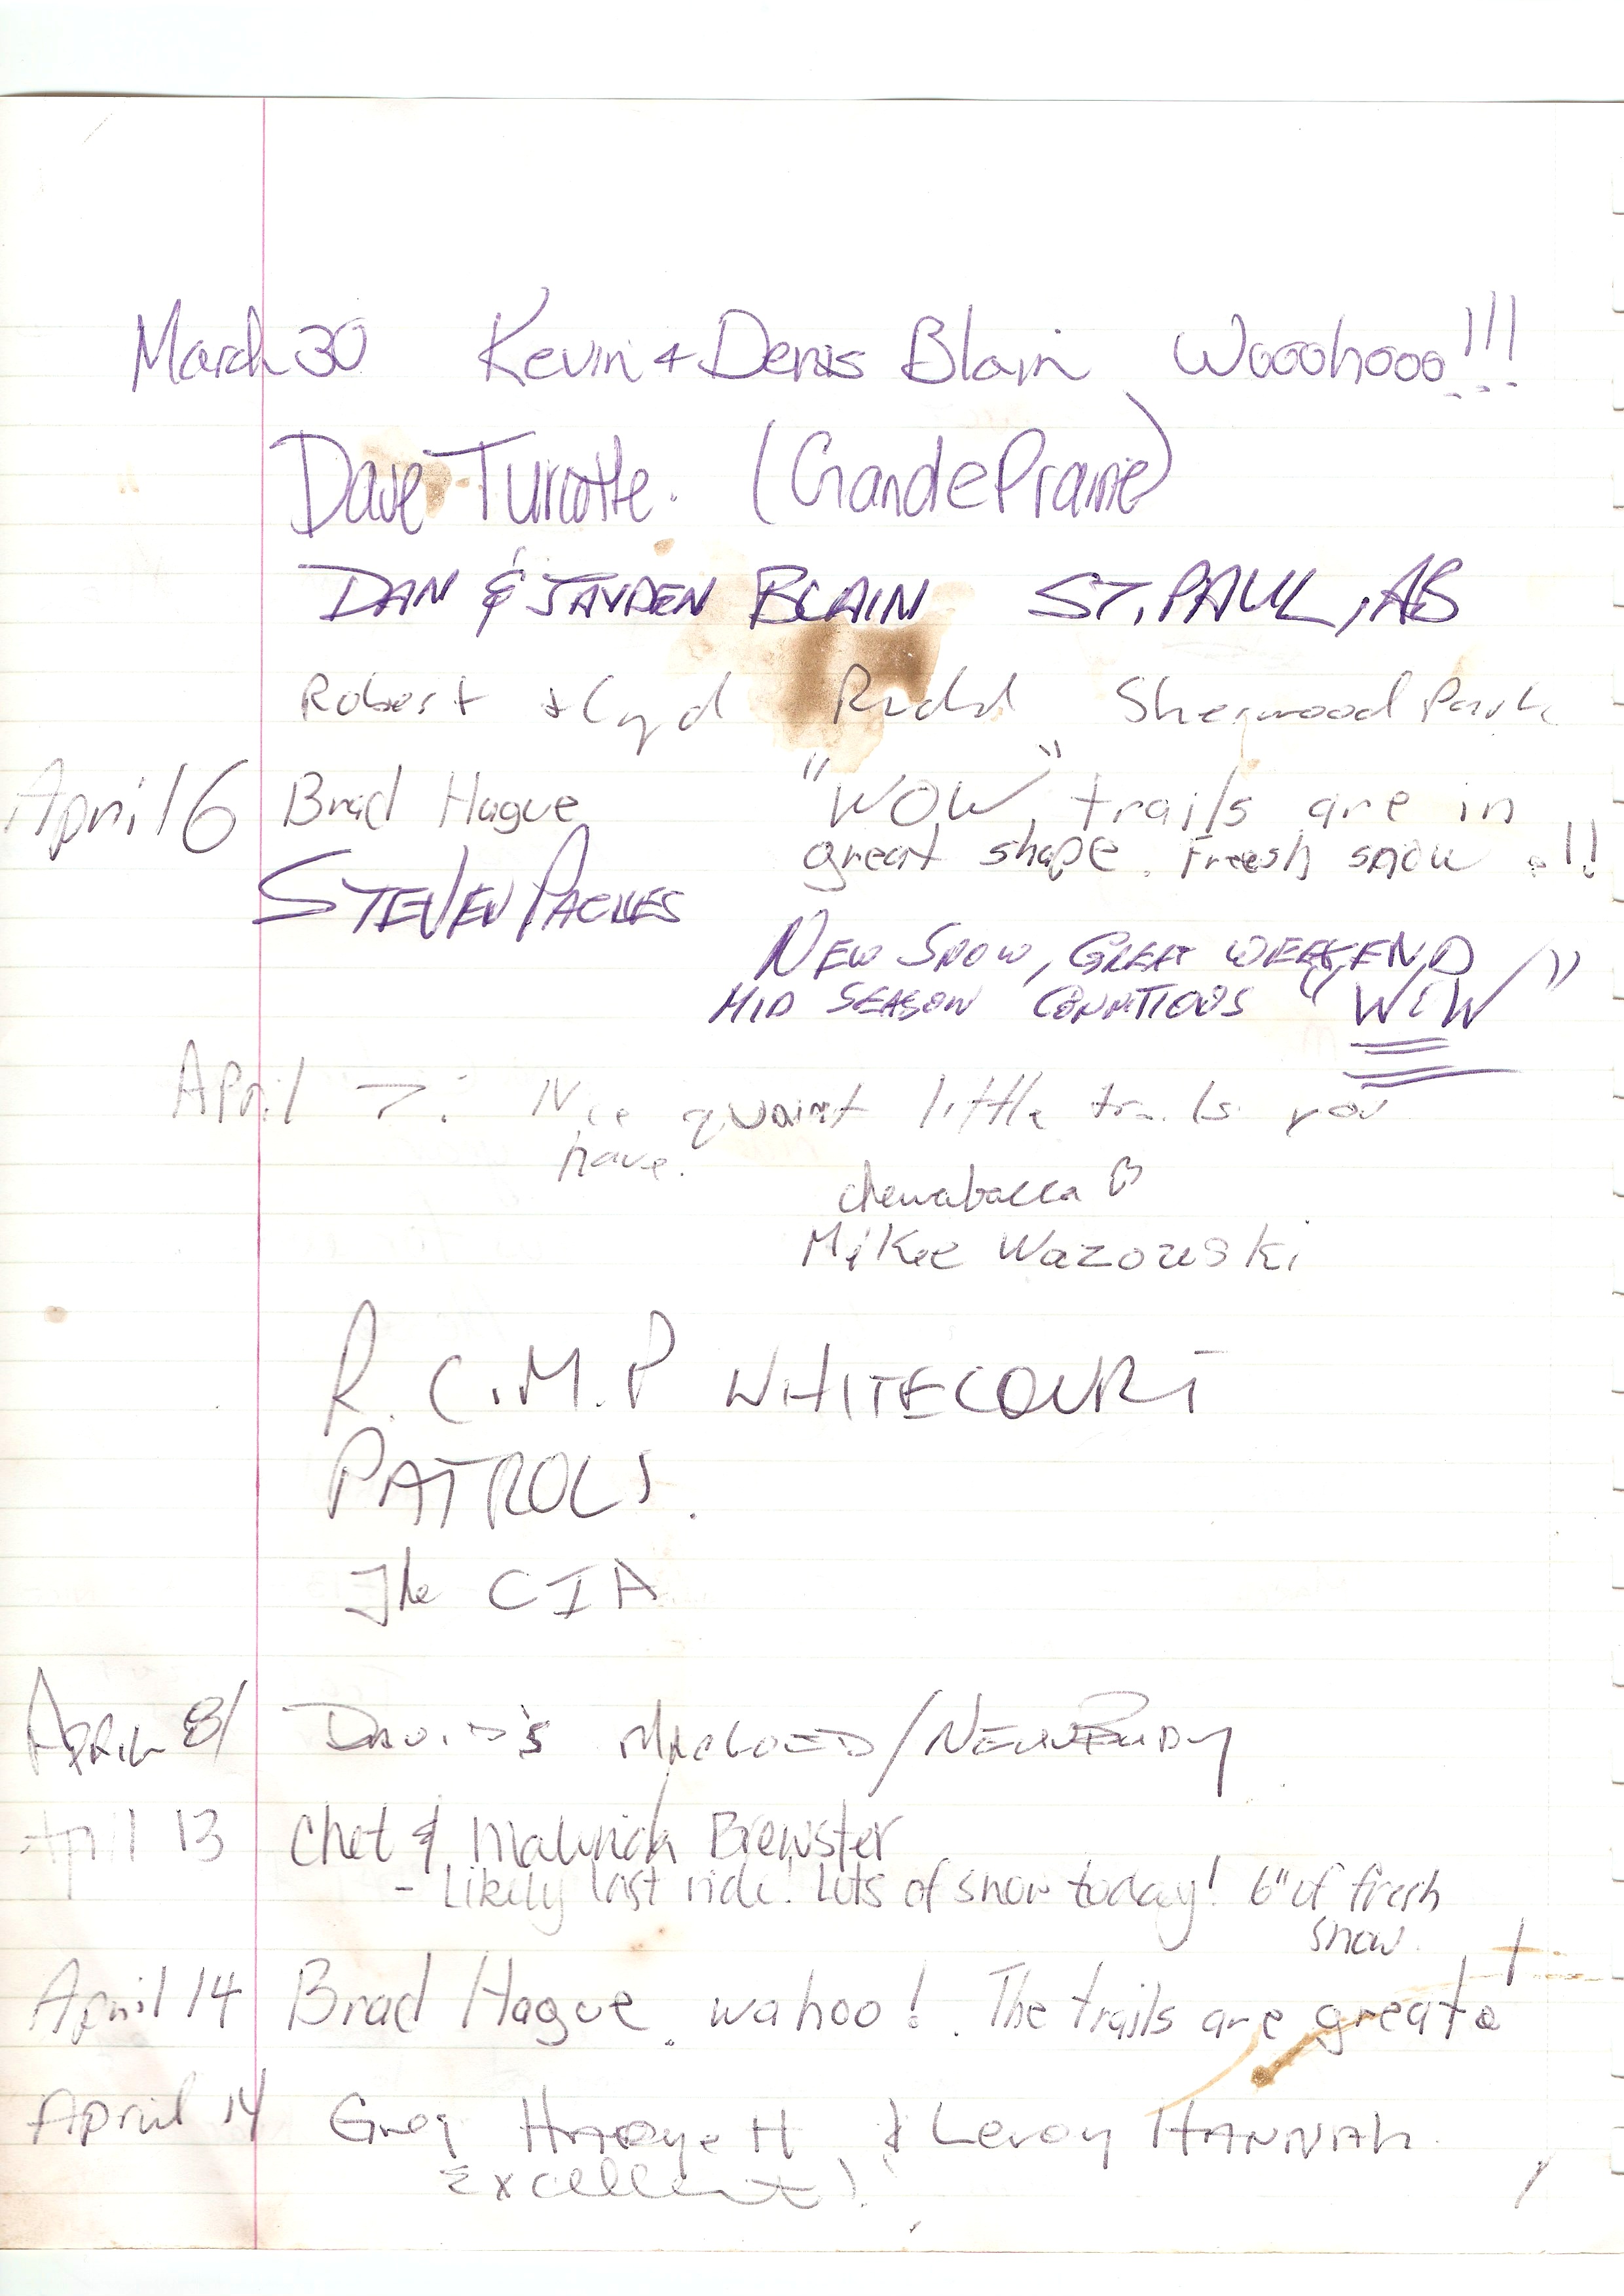 March 30 Kevin + Denis Blain Wooohooo!!!
Dave Turcotte. (Grande Prairie)
DAN & JAYDEN BLAIN ST. PAUL, AB
Robert + Cyd Rudd Sherwood Park
April 6 Brad Hague "WOW" trails are in
great shape. Fresh snow .!!
STEVEN
NEW SNOW, GREAT WEEKEND
MID SEASON CONDITIONS "WOW"
April 7: Nice quaint little trails you
have.
chewabacca
Mike Wazowski
R.C.M.P WHITECOURT
PATROLS.
The CIA
APRIL 8/ DAVID'S MACLOED/
April 13 Chet & Malynda Brewster
- Likely last ride! Lots of snow today! 6" of fresh
snow.
April 14 Brad Hague. wahoo!. The trails are great!
April 14 Greg & Leroy HANNAH
Excellent!